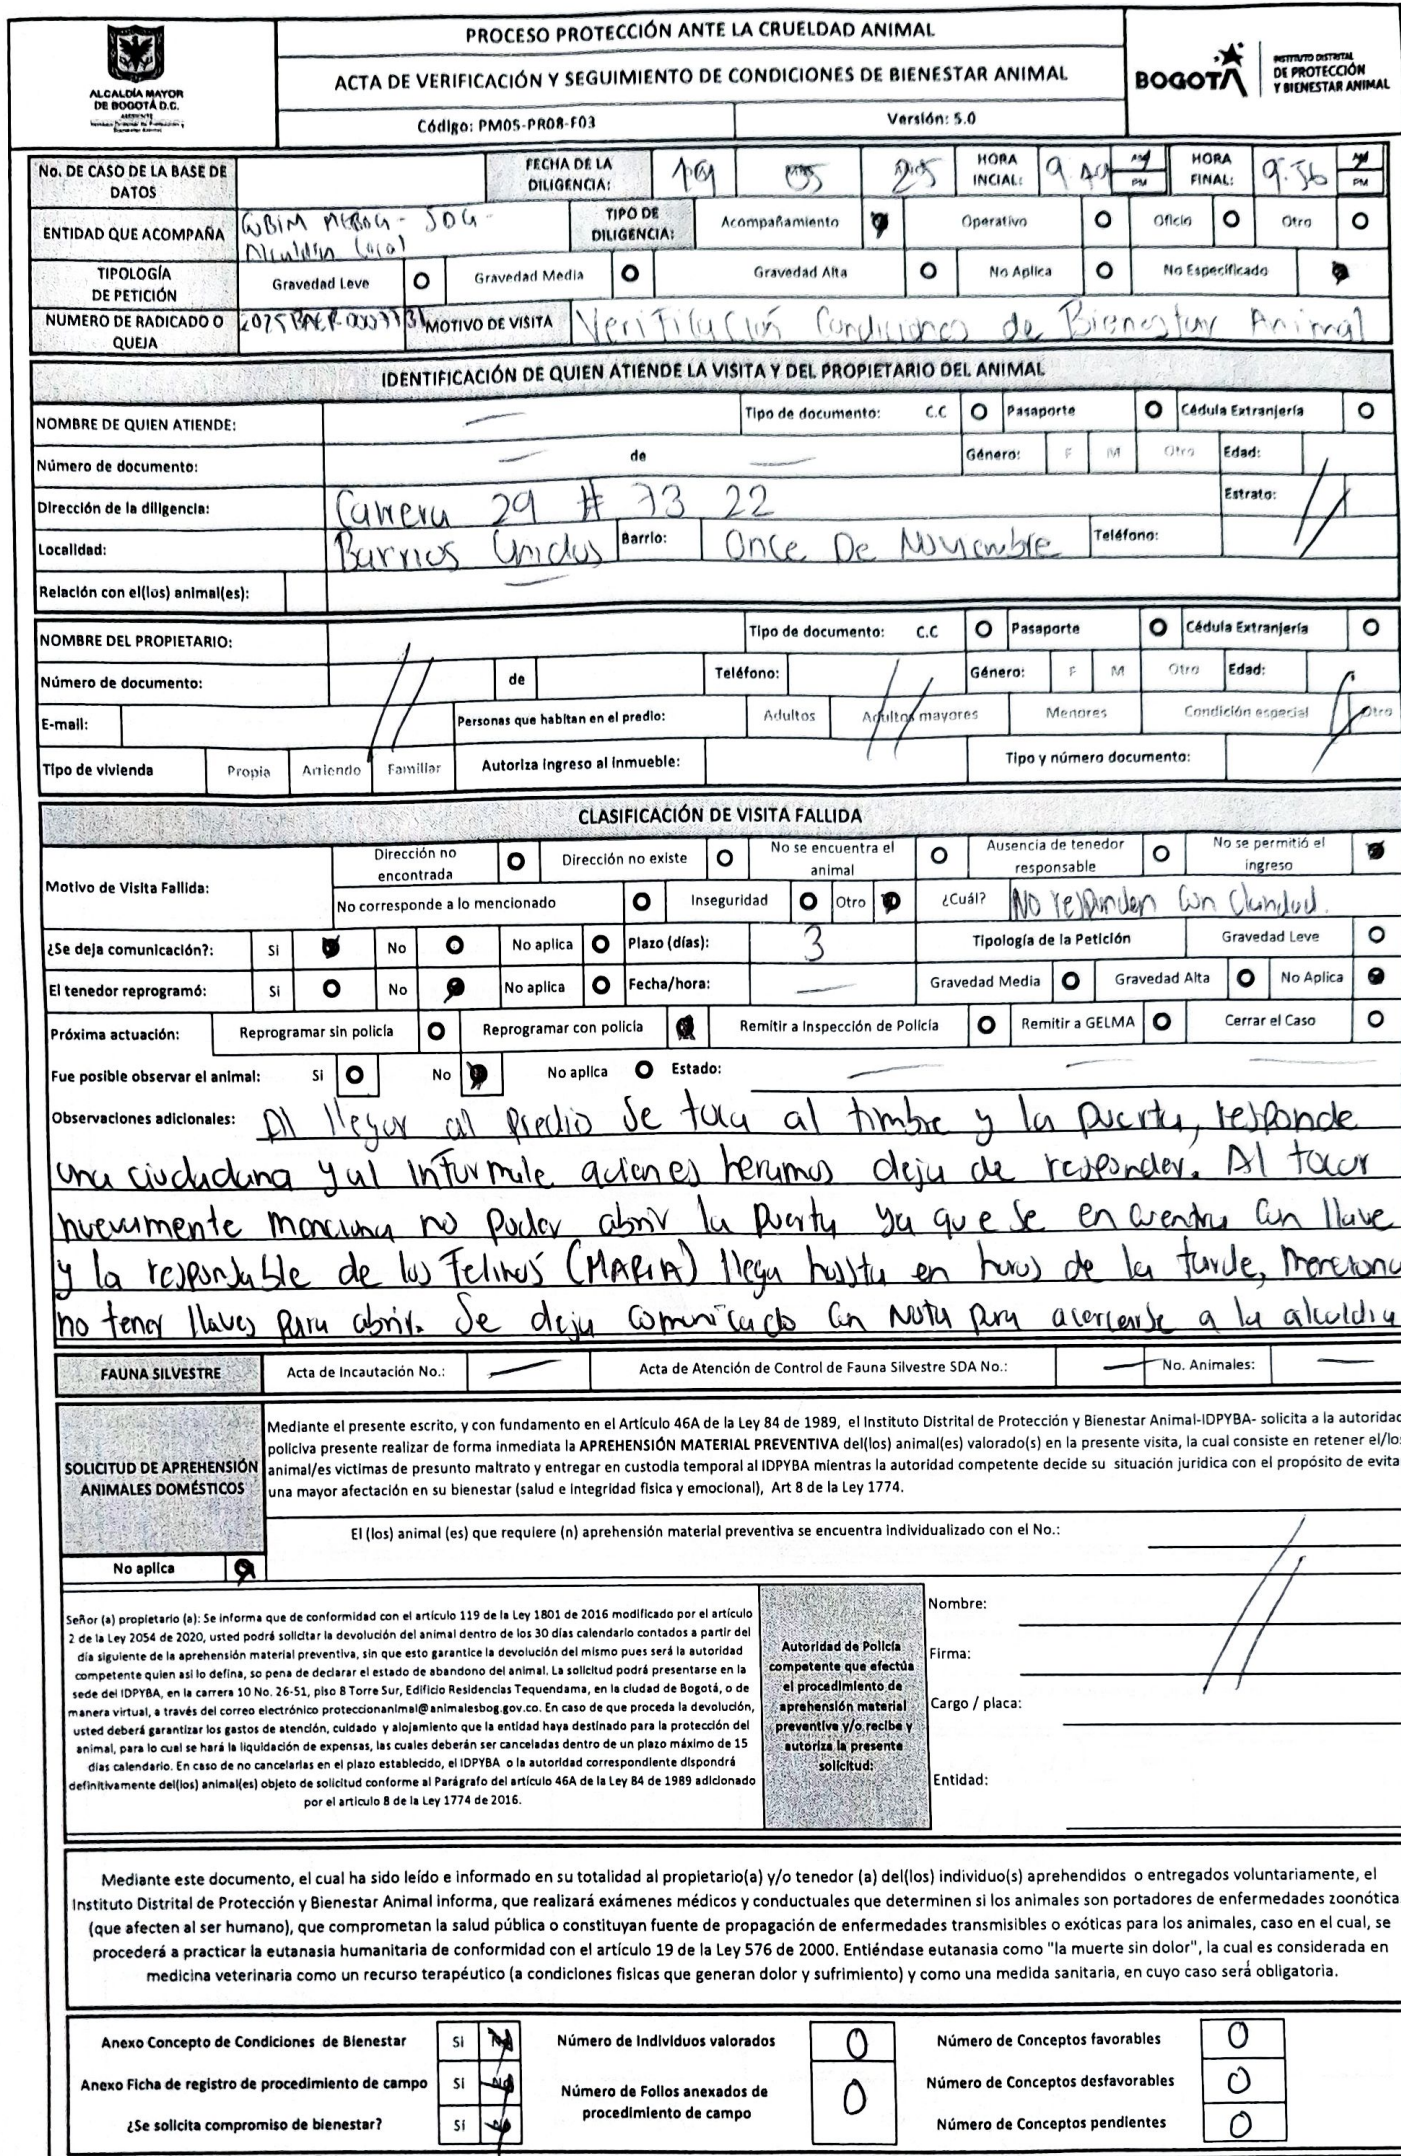 ALCALDÍA MAYOR
DE BOGOTÁ D.C.
AMBIENTE
PROCESO PROTECCIÓN ANTE LA CRUELDAD ANIMAL
ACTA DE VERIFICACIÓN Y SEGUIMIENTO DE CONDICIONES DE BIENESTAR ANIMAL
Código: PM05-PR08-F03 Versión: 5.0
BOGOTÁ
INSTITUTO DISTRITAL
DE PROTECCIÓN
Y BIENESTAR ANIMAL
No. DE CASO DE LA BASE DE DATOS FECHA DE LA DILIGENCIA: 05 25 HORA INCIAL: AM PM HORA FINAL: 9:56 AM PM
ENTIDAD QUE ACOMPAÑA GUBIM MEBOG - SDG - Alcaldía Local TIPO DE DILIGENCIA: Acompañamiento Operativo Oficio Otro
TIPOLOGÍA DE PETICIÓN Gravedad Leve Gravedad Media Gravedad Alta No Aplica No Especificado
NUMERO DE RADICADO O QUEJA MOTIVO DE VISITA Verifilación Condiciones de Bienestar Animal
IDENTIFICACIÓN DE QUIEN ATIENDE LA VISITA Y DEL PROPIETARIO DEL ANIMAL
NOMBRE DE QUIEN ATIENDE: Tipo de documento: C.C Pasaporte Cédula Extranjería
Número de documento: — de — Género: F M Otro Edad:
Dirección de la diligencia: Carrera 29 # 73 22 Estrato:
Localidad: Barrios Unidos Barrio: Once De Noviembre Teléfono:
Relación con el(los) animal(es):
NOMBRE DEL PROPIETARIO: Tipo de documento: C.C Pasaporte Cédula Extranjería
Número de documento: de Teléfono: Género: F M Otro Edad:
E-mail: Personas que habitan en el predio: Adultos Adultos mayores Menores Condición especial Otro
Tipo de vivienda Propia Arriendo Familiar Autoriza ingreso al inmueble: Tipo y número documento:
CLASIFICACIÓN DE VISITA FALLIDA
Motivo de Visita Fallida: Dirección no encontrada Dirección no existe No se encuentra el animal Ausencia de tenedor responsable No se permitió el ingreso
No corresponde a lo mencionado Inseguridad Otro ¿Cuál? No responden con claridad.
¿Se deja comunicación?: Si No No aplica Plazo (días): 3 Tipología de la Petición Gravedad Leve
El tenedor reprogramó: Si No No aplica Fecha/hora: — Gravedad Media Gravedad Alta No Aplica
Próxima actuación: Reprogramar sin policía Reprogramar con policía Remitir a Inspección de Policía Remitir a GELMA Cerrar el Caso
Fue posible observar el animal: Si No No aplica Estado: — — —
Observaciones adicionales: Al llegar al predio se toca al timbre y la puerta, responde
una ciudadana y al informale quienes heramos deja de responder. Al tocar
nuevamente menciona no poder abrir la puerta ya que se encuentra con llave
y la responsable de los felinos (MARIA) llega hasta en horas de la tarde, menciona
no tener llaves para abrir. Se deja comunicado con nota para acercarse a la alcaldia
FAUNA SILVESTRE Acta de Incautación No.: — Acta de Atención de Control de Fauna Silvestre SDA No.: — No. Animales: —
SOLICITUD DE APREHENSIÓN ANIMALES DOMÉSTICOS
Mediante el presente escrito, y con fundamento en el Artículo 46A de la Ley 84 de 1989, el Instituto Distrital de Protección y Bienestar Animal-IDPYBA- solicita a la autoridad
policiva presente realizar de forma inmediata la APREHENSIÓN MATERIAL PREVENTIVA del(los) animal(es) valorado(s) en la presente visita, la cual consiste en retener el/los
animal/es victimas de presunto maltrato y entregar en custodia temporal al IDPYBA mientras la autoridad competente decide su situación juridica con el propósito de evita
una mayor afectación en su bienestar (salud e integridad física y emocional), Art 8 de la Ley 1774.
El (los) animal (es) que requiere (n) aprehensión material preventiva se encuentra individualizado con el No.:
No aplica
Señor (a) propietario (a): Se informa que de conformidad con el artículo 119 de la Ley 1801 de 2016 modificado por el artículo
2 de la Ley 2054 de 2020, usted podrá solicitar la devolución del animal dentro de los 30 días calendario contados a partir del
día siguiente de la aprehensión material preventiva, sin que esto garantice la devolución del mismo pues será la autoridad
competente quien asi lo defina, so pena de declarar el estado de abandono del animal. La solicitud podrá presentarse en la
sede del IDPYBA, en la carrera 10 No. 26-51, piso 8 Torre Sur, Edificio Residencias Tequendama, en la ciudad de Bogotá, o de
manera virtual, a través del correo electrónico proteccionanimal@animalesbog.gov.co. En caso de que proceda la devolución,
usted deberá garantizar los gastos de atención, cuidado y alojamiento que la entidad haya destinado para la protección del
animal, para lo cual se hará la liquidación de expensas, las cuales deberán ser canceladas dentro de un plazo máximo de 15
días calendario. En caso de no cancelarlas en el plazo establecido, el IDPYBA o la autoridad correspondiente dispondrá
definitivamente del(los) animal(es) objeto de solicitud conforme al Parágrafo del artículo 46A de la Ley 84 de 1989 adicionado
por el artículo 8 de la Ley 1774 de 2016.
Autoridad de Policía
competente que efectúa
el procedimiento de
aprehensión material
preventiva y/o recibe y
autoriza la presente
solicitud:
Nombre:
Firma:
Cargo / placa:
Entidad:
Mediante este documento, el cual ha sido leído e informado en su totalidad al propietario(a) y/o tenedor (a) del(los) individuo(s) aprehendidos o entregados voluntariamente, el
Instituto Distrital de Protección y Bienestar Animal informa, que realizará exámenes médicos y conductuales que determinen si los animales son portadores de enfermedades zoonótica
(que afecten al ser humano), que comprometan la salud pública o constituyan fuente de propagación de enfermedades transmisibles o exóticas para los animales, caso en el cual, se
procederá a practicar la eutanasia humanitaria de conformidad con el artículo 19 de la Ley 576 de 2000. Entiéndase eutanasia como "la muerte sin dolor", la cual es considerada en
medicina veterinaria como un recurso terapéutico (a condiciones físicas que generan dolor y sufrimiento) y como una medida sanitaria, en cuyo caso será obligatoria.
Anexo Concepto de Condiciones de Bienestar Si No Número de Individuos valorados 0 Número de Conceptos favorables 0
Anexo Ficha de registro de procedimiento de campo Si No Número de Folios anexados de procedimiento de campo 0 Número de Conceptos desfavorables 0
¿Se solicita compromiso de bienestar? Si No Número de Conceptos pendientes 0